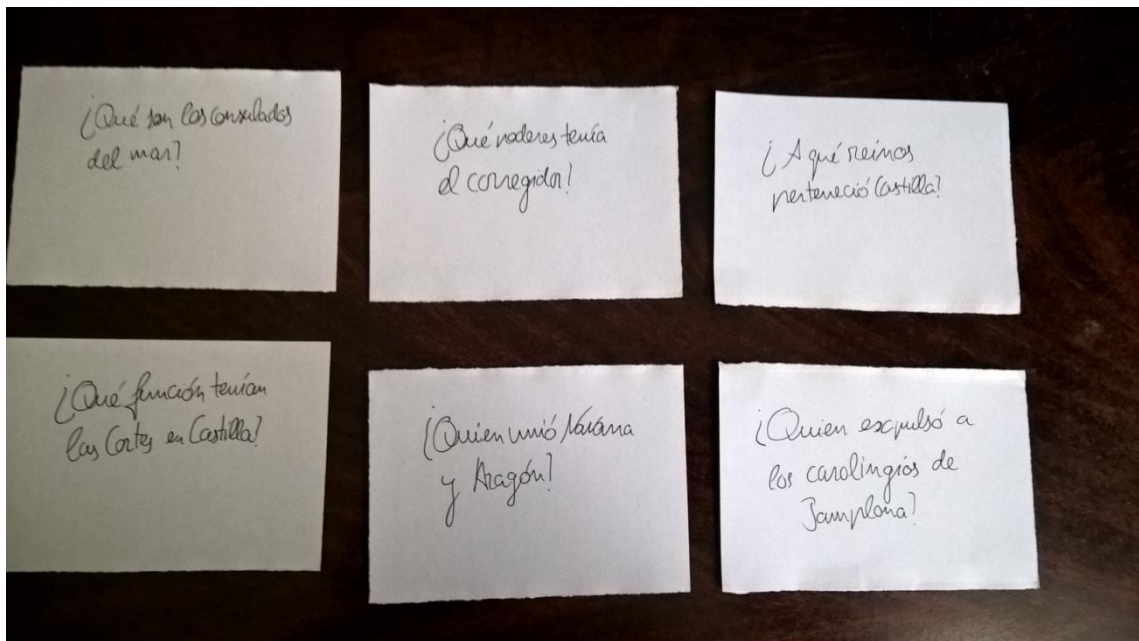 ¿Qué son los consulados
del mar?
¿Qué poderes tenía
el corregidor?
¿A qué reinos
perteneció Castilla?
¿Qué función tenían
las Cortes en Castilla?
¿Quien unió Navarra
y Aragón?
¿Quien expulsó a
los carolingios de
Pamplona?